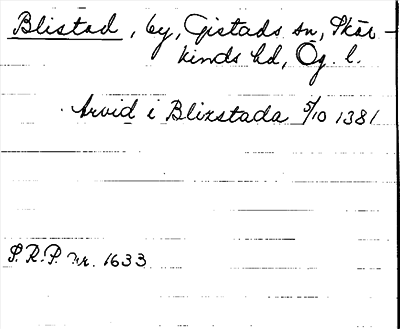 Blistad, by, Gistads sn, Skär-
kinds hd, Ög. l.
Arvid i Blixstada 5/10 1381
S.R.P. nr. 1633